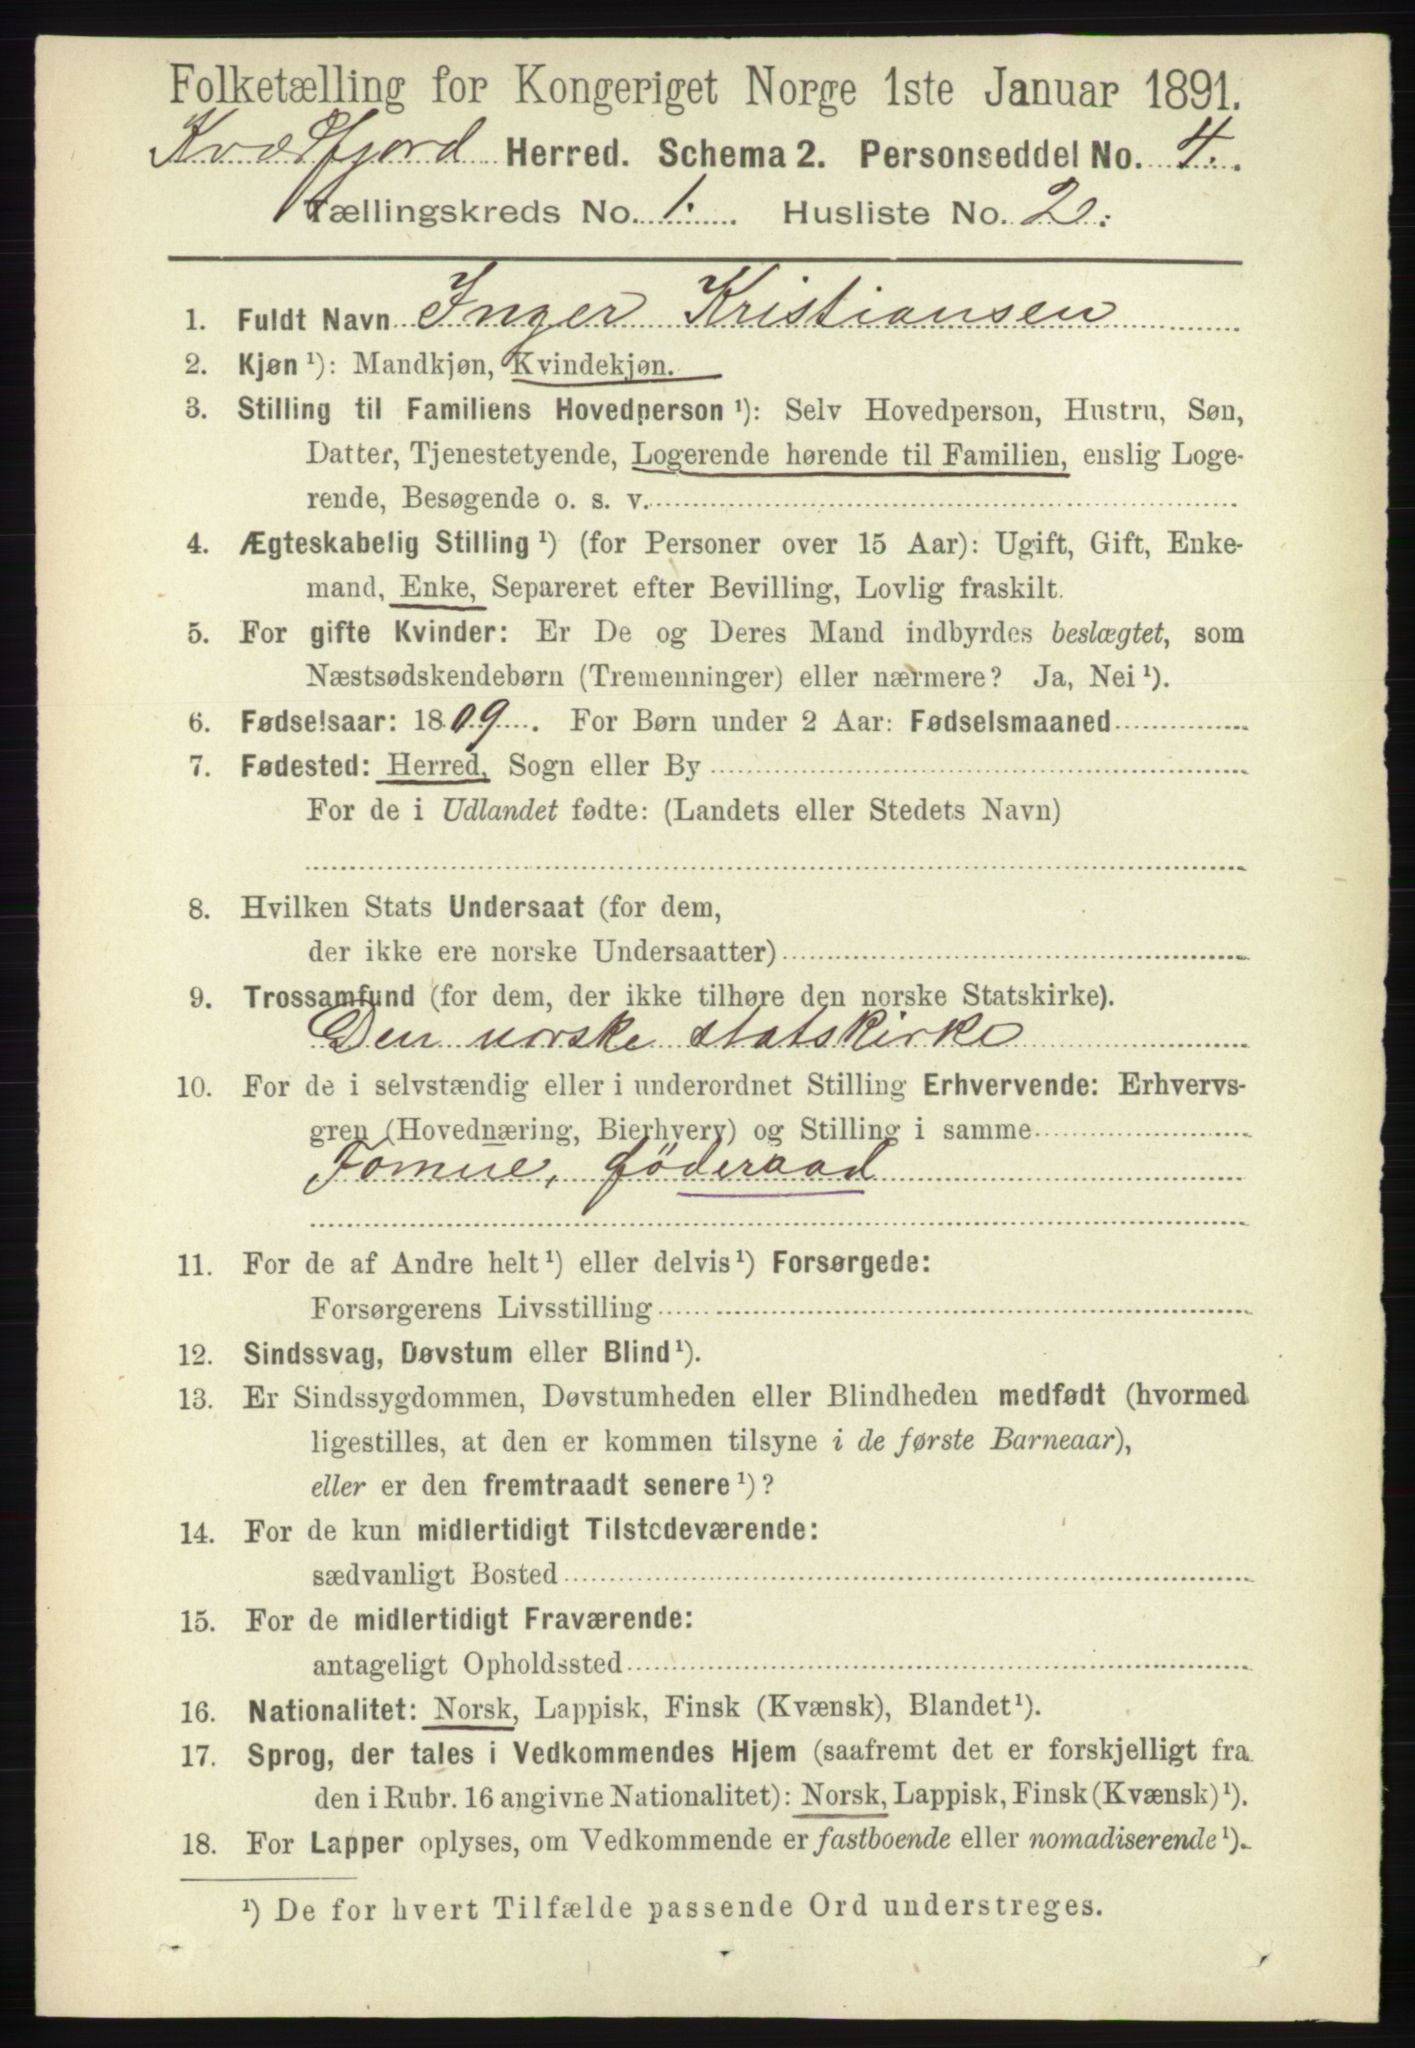 Folketælling for Kongeriget Norge 1ste Januar 1891.
Kvædfjord Herred. Schema 2. Personseddel No. 4.
Tællingskreds No. 1. Husliste No. 2.
1. Fuldt Navn Inger Kristiansen
2. Kjøn ¹): Mandkjøn, Kvindekjøn.
3. Stilling til Familiens Hovedperson ¹): Selv Hovedperson, Hustru, Søn,
Datter, Tjenestetyende, Logerende hørende til Familien, enslig Loge-
rende, Besøgende o. s. v.
4. Ægteskabelig Stilling ¹) (for Personer over 15 Aar): Ugift, Gift, Enke-
mand, Enke, Separeret efter Bevilling, Lovlig fraskilt.
5. For gifte Kvinder: Er De og Deres Mand indbyrdes beslægtet, som
Næstsødskendebørn (Tremenninger) eller nærmere? Ja, Nei ¹).
6. Fødselsaar: 1809. For Børn under 2 Aar: Fødselsmaaned
7. Fødested: Herred, Sogn eller By
For de i Udlandet fødte: (Landets eller Stedets Navn)
8. Hvilken Stats Undersaat (for dem,
der ikke ere norske Undersaatter)
9. Trossamfund (for dem, der ikke tilhøre den norske Statskirke).
Den norske statskirke
10. For de i selvstændig eller i underordnet Stilling Erhvervende: Erhvervs-
gren (Hovednæring, Bierhverv) og Stilling i samme
Fomue, föderaad
11. For de af Andre helt ¹) eller delvis ¹) Forsørgede:
Forsørgerens Livsstilling
12. Sindssvag, Døvstum eller Blind ¹).
13. Er Sindssygdommen, Døvstumheden eller Blindheden medfødt (hvormed
ligestilles, at den er kommen tilsyne i de første Barneaar),
eller er den fremtraadt senere ¹)?
14. For de kun midlertidigt Tilstedeværende:
sædvanligt Bosted
15. For de midlertidigt Fraværende:
antageligt Opholdssted
16. Nationalitet: Norsk, Lappisk, Finsk (Kvænsk), Blandet ¹).
17. Sprog, der tales i Vedkommendes Hjem (saafremt det er forskjelligt fra
den i Rubr. 16 angivne Nationalitet): Norsk, Lappisk, Finsk (Kvænsk) ¹).
18. For Lapper oplyses, om Vedkommende er fastboende eller nomadiserende ¹).
¹) De for hvert Tilfælde passende Ord understreges.